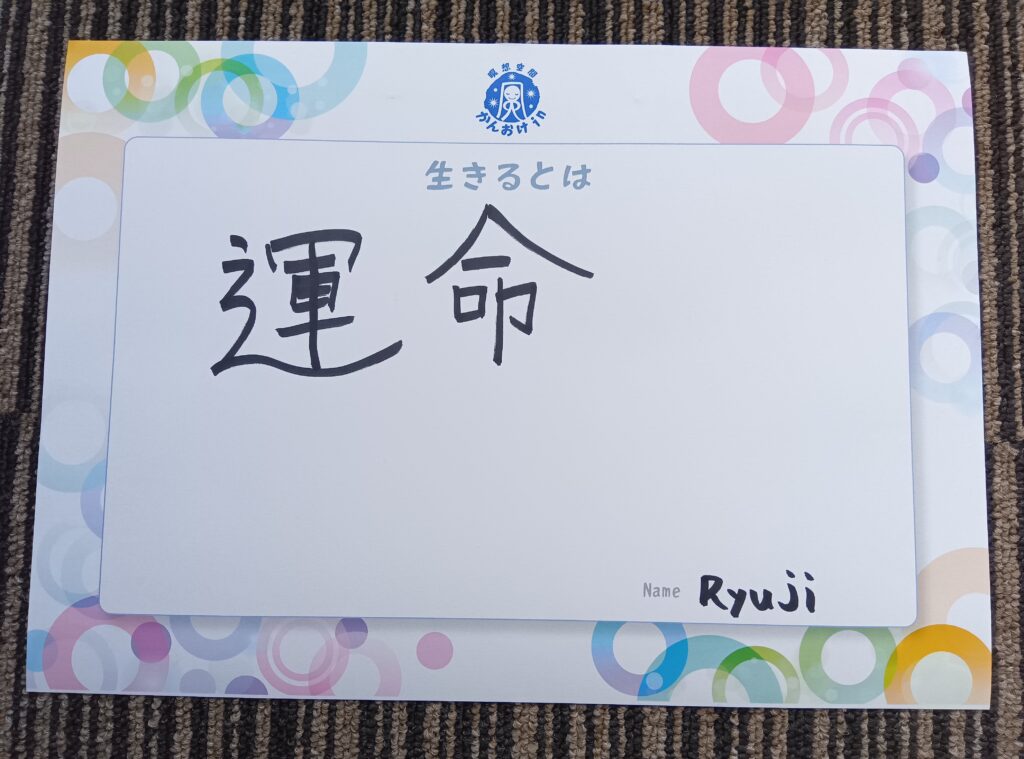 瞑想空間
かんおけ in
生きるとは
運命
Name Ryuji